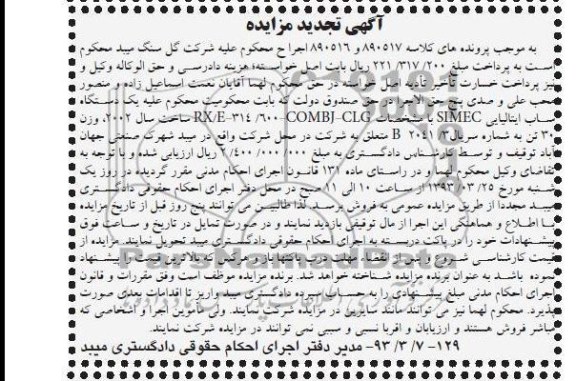 آگهی تجدید مزایده
به موجب پرونده های کلاسه ۸۹۰۵۱۷ و ۸۹۰۵۱۶ اجرا ح محکوم علیه شرکت گل سنگ میبد محکوم
است به پرداخت مبلغ ۲۲۱/۳۱۷/۲۰۰ ریال بابت اصل خواسته، هزینه دادرسی و حق الوکاله وکیل و
نیز پرداخت خسارت تأخیر تأدیه اصل خواسته در حق محکوم لهما آقایان نعمت اسماعیل زاده و منصور
محب علی و صدی پنج حق الاجرا در حق صندوق دولت که بابت محکومیت محکوم علیه یک دستگاه
ساب ایتالیایی SIMEC با مشخصات RX/E-۳۱۴/۶۰۰-COMBJ-CLG ساخت سال ۲۰۰۲، وزن
۳۰ تن به شماره سریال B ۲۰۴۱/۳ متعلق به شرکت در محل شرکت واقع در میبد شهرک صنعتی جهان
آباد توقیف و توسط کارشناس دادگستری به مبلغ ۲/۴۰۰/۰۰۰/۰۰۰ ریال ارزیابی شده و با توجه به
تقاضای وکیل محکوم لهما و در راستای ماده ۱۳۱ قانون اجرای احکام مدنی مقرر گردیده در روز یک
شنبه مورخ ۱۳۹۳/۰۳/۲۵ از ساعت ۱۰ الی ۱۱ صبح در محل دفتر اجرای احکام حقوقی دادگستری
میبد مجددا از طریق مزایده عمومی به فروش برسد. لذا طالبین می توانند پنج روز قبل از تاریخ مزایده
با اطلاع و هماهنگی این اجرا از مال توقیفی بازدید نمایند و در صورت تمایل در تاریخ و ساعت فوق
پیشنهادات خود را در پاکت دربسته به اجرای احکام حقوقی دادگستری میبد تحویل نمایند. مزایده از
قیمت کارشناسی شروع و پس از انقضا مهلت، درب پاکتها باز و هرکس که بالاترین قیمت را پیشنهاد
نموده باشد به عنوان برنده مزایده شناخته خواهد شد. برنده مزایده موظف است وفق مقررات و قانون
اجرای احکام مدنی مبلغ پیشنهادی را به حساب سپرده دادگستری میبد واریز تا اقدامات بعدی صورت
پذیرد. محکوم لهما نیز می توانند مانند سایرین در مزایده شرکت نمایند. ولی مأمورین اجرا و اشخاصی که
مباشر فروش هستند و ارزیابان و اقربا نسبی و سببی نمی توانند در مزایده شرکت نمایند.
۱۲۹- ۹۳/۳/۷- مدیر دفتر اجرای احکام حقوقی دادگستری میبد
ParsNamadData